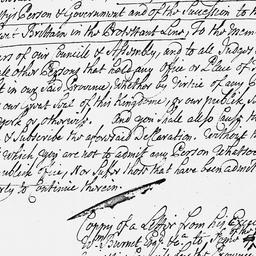 ty's Person & Government and of the Succession to th
Great Brittain in the Protestant Line, to the Mem
ers of our Councils & Assembly, and to all Judges
all other Persons that hold any Office or Place of
in our said Province, whether by Virtue of any
our Great Seal of this Kingdome, or our publick S
or otherwise. And you shall also cause th
& Subscribe the aforesaid Declaration. Without th
which you are not to admitt any Person Whatso
publick Office, Nor suffer those that have been admitt
to Continue therein.
Coppy of a Letter from his Exce
Burnet Esq.